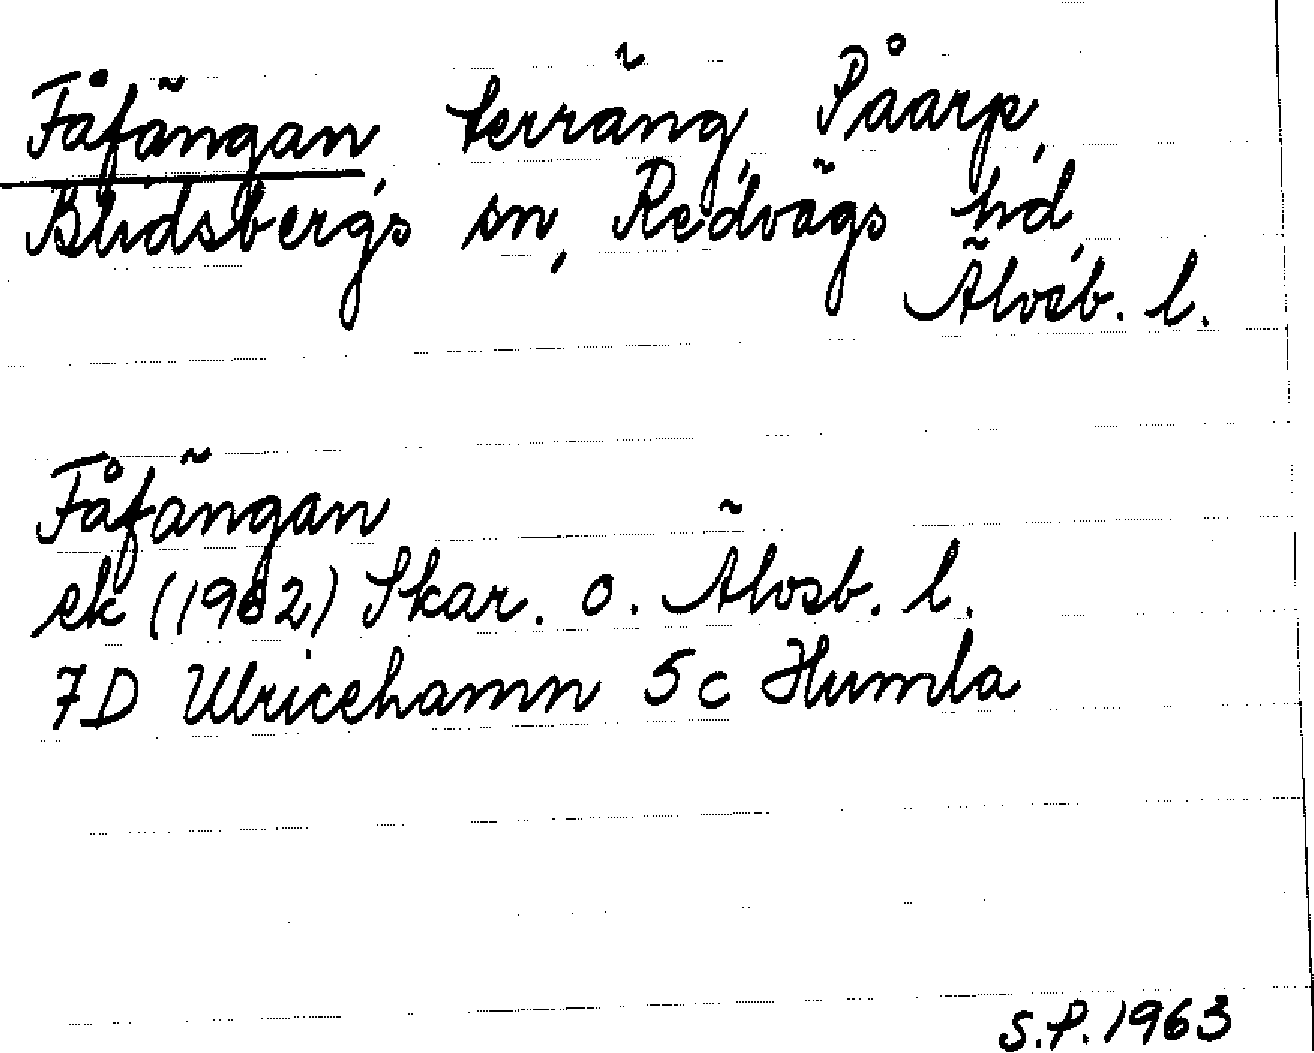 Fåfängan, terräng, Påarp,
Blidsbergs sn, Redvägs hd,
Älvsb. l.
Fåfängan
ek (1962) Skar. o. Älvsb. l.
7D Ulricehamn 5c Humla
S.P. 1963